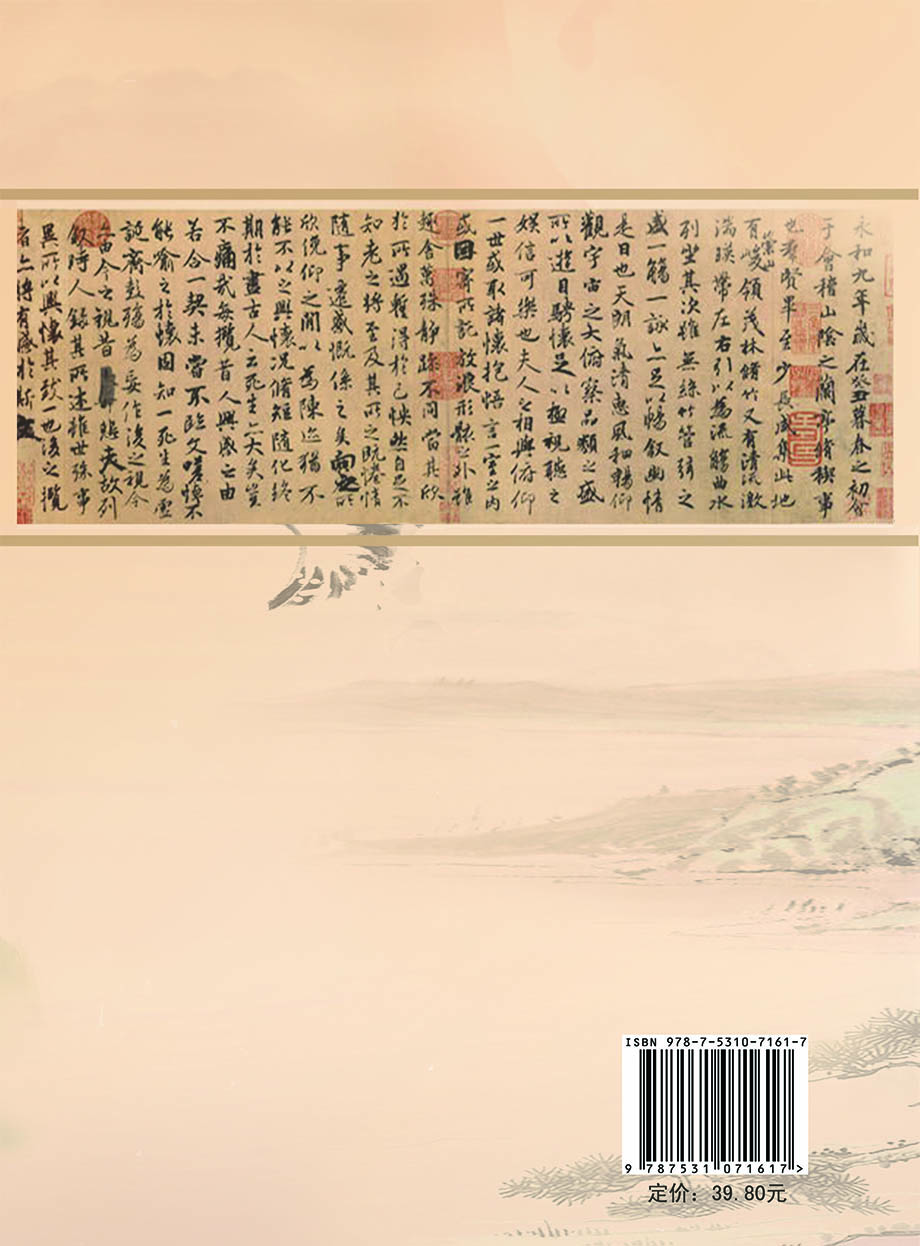 永和九年歲在癸丑暮春之初會
于會稽山陰之蘭亭脩稧事
也羣賢畢至少長咸集此地
有崇山峻領茂林脩竹又有清流激
湍暎帶左右引以為流觴曲水
列坐其次雖無絲竹管弦之
盛一觴一詠亦足以暢敘幽情
是日也天朗氣清惠風和暢仰
觀宇宙之大俯察品類之盛
所以遊目騁懷足以極視聽之
娛信可樂也夫人之相與俯仰
一世或取諸懷抱悟言一室之內
或因寄所託放浪形骸之外雖
趣舍萬殊靜躁不同當其欣
於所遇蹔得於己怏然自足不
知老之將至及其所之既惓情
隨事遷感慨係之矣向之所
欣俛仰之閒以為陳迹猶不
能不以之興懷況脩短隨化終
期於盡古人云死生亦大矣豈
不痛哉每攬昔人興感之由
若合一契未嘗不臨文嗟悼不
能喻之於懷固知一死生為虛
誕齊彭殤為妄作後之視今
亦由今之視昔悲夫故列
敘時人錄其所述雖世殊事
異所以興懷其致一也後之攬
者亦將有感於斯文
ISBN 978-7-5310-7161-7
9 787531 071617 >
定价：39.80元